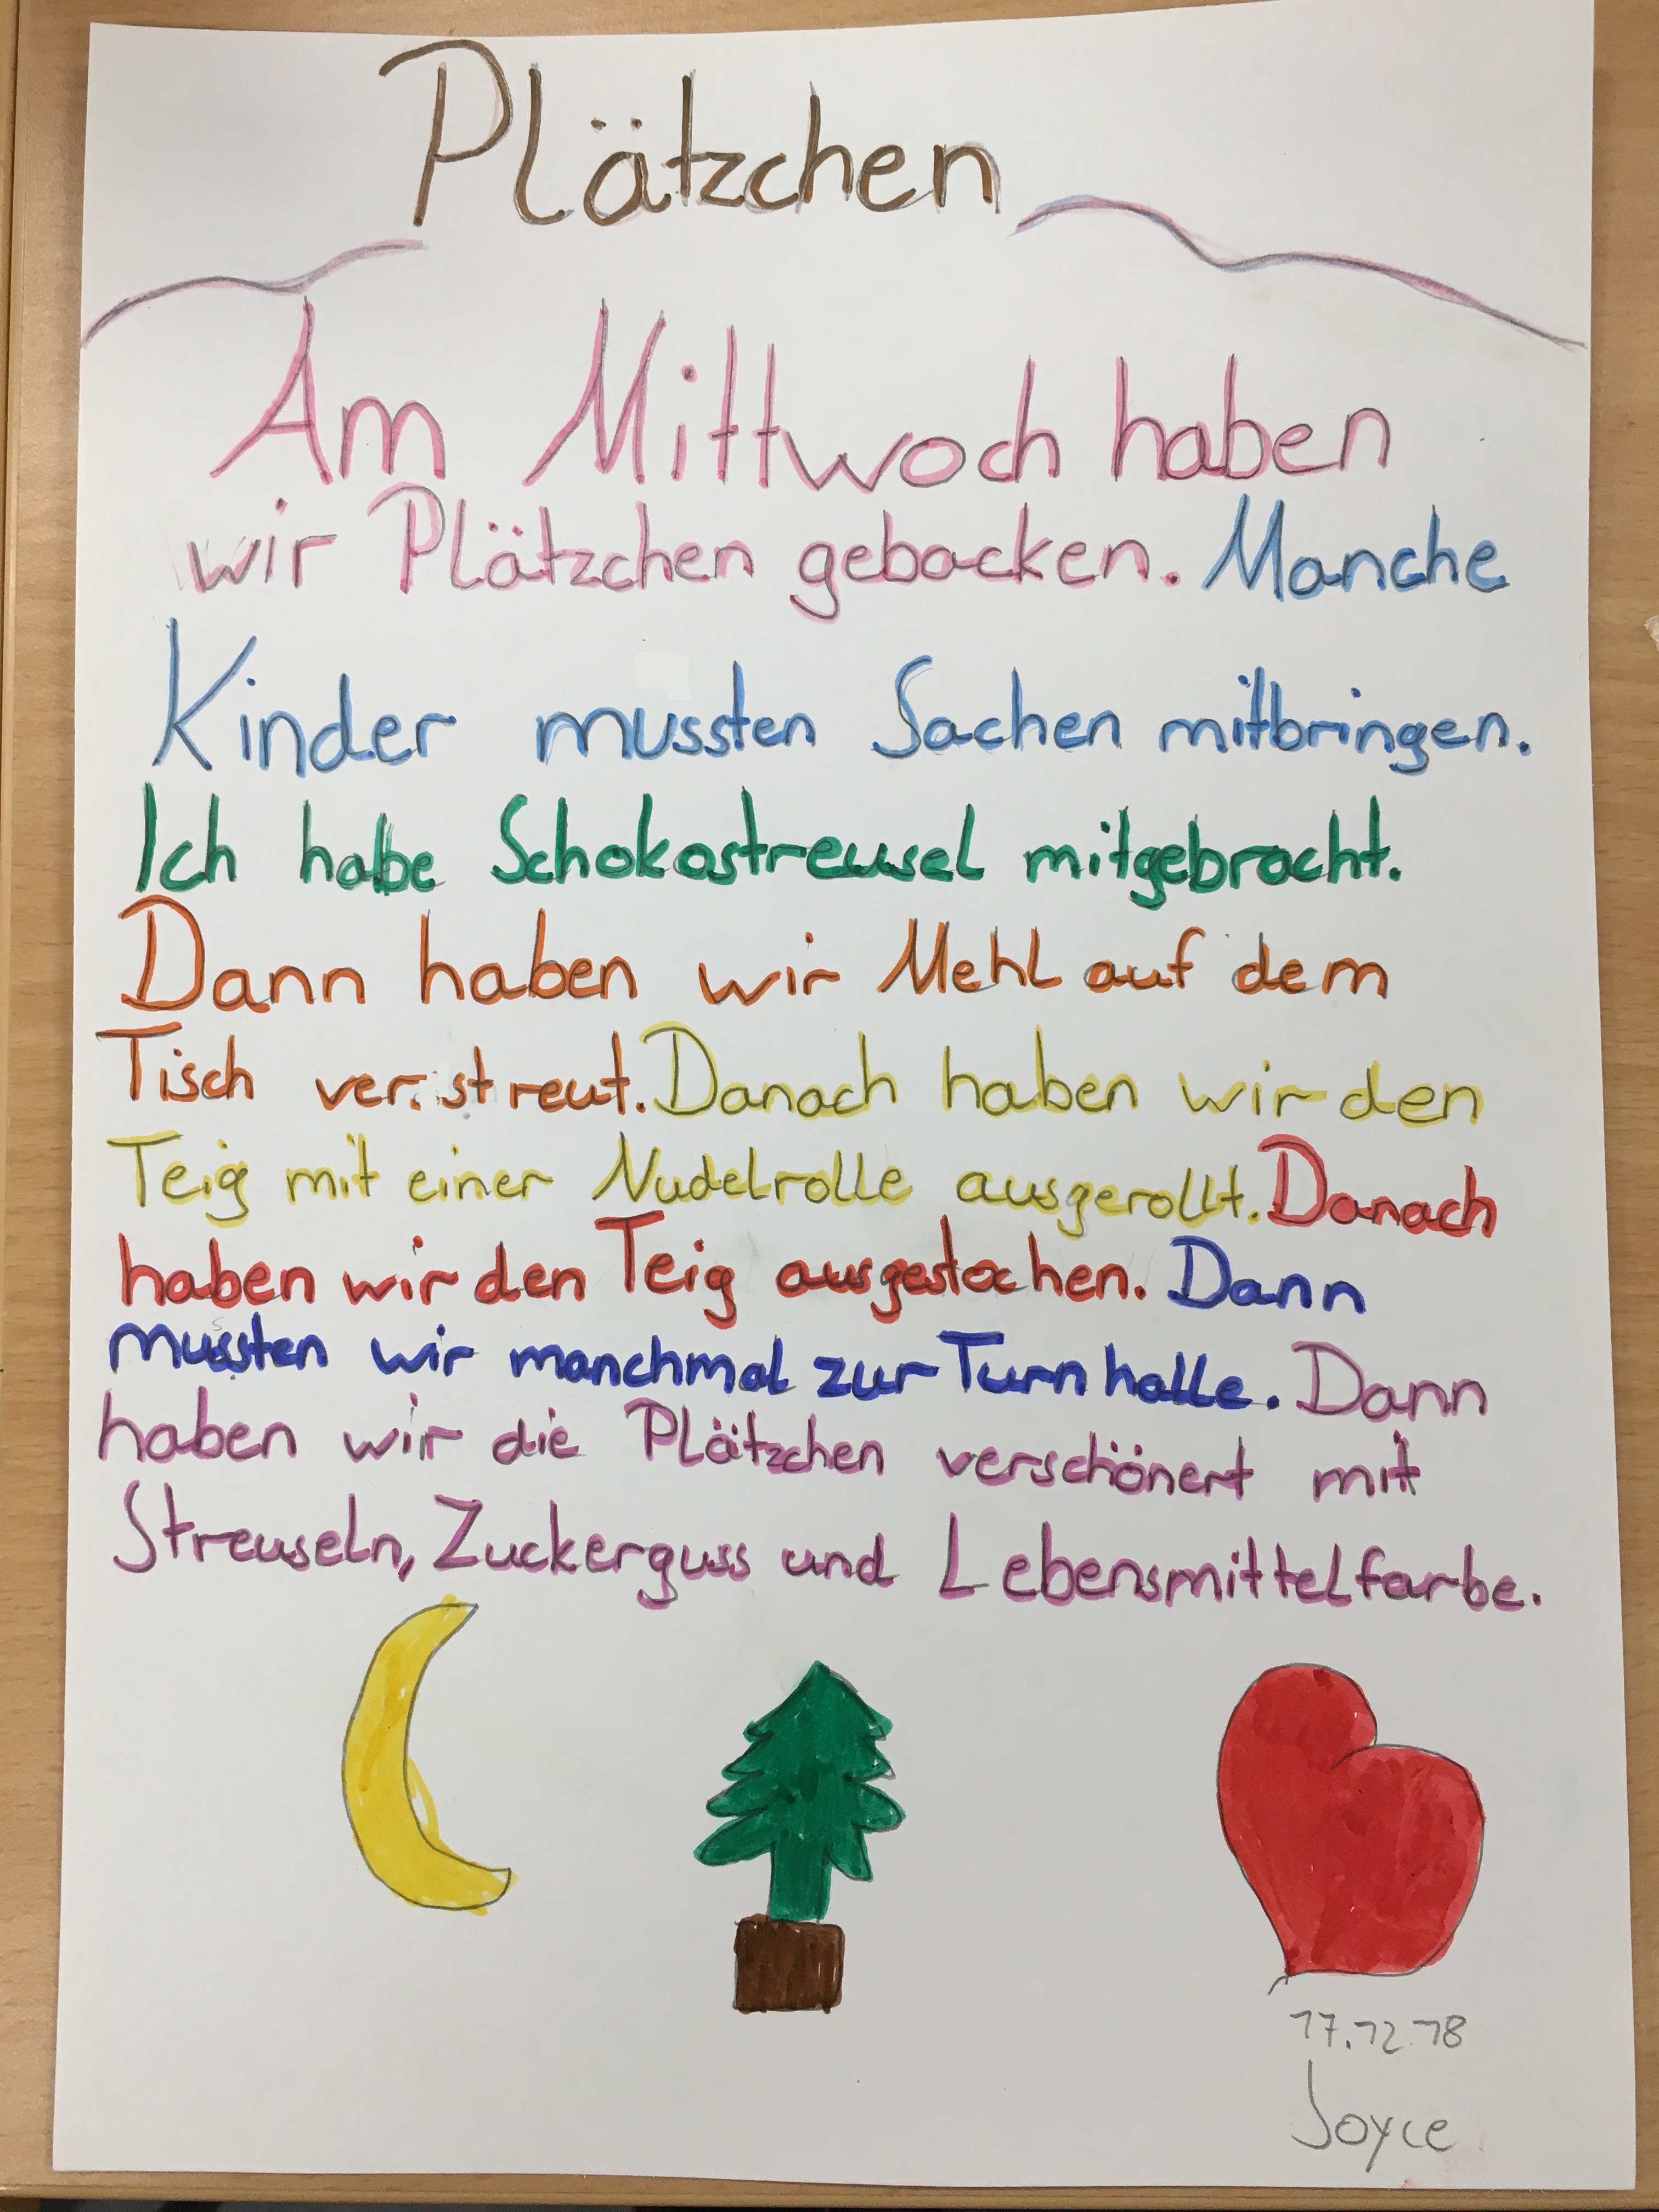 Plätzchen
Am Mittwoch haben
wir Plätzchen gebacken. Manche
Kinder mussten Sachen mitbringen.
Ich habe Schokostreusel mitgebracht.
Dann haben wir Mehl auf dem
Tisch verstreut. Danach haben wir den
Teig mit einer Nudelrolle ausgerollt. Danach
haben wir den Teig ausgestochen. Dann
mussten wir manchmal zur Turnhalle. Dann
haben wir die Plätzchen verschönert mit
Streuseln, Zuckerguss und Lebensmittelfarbe.
17.12.18
Joyce